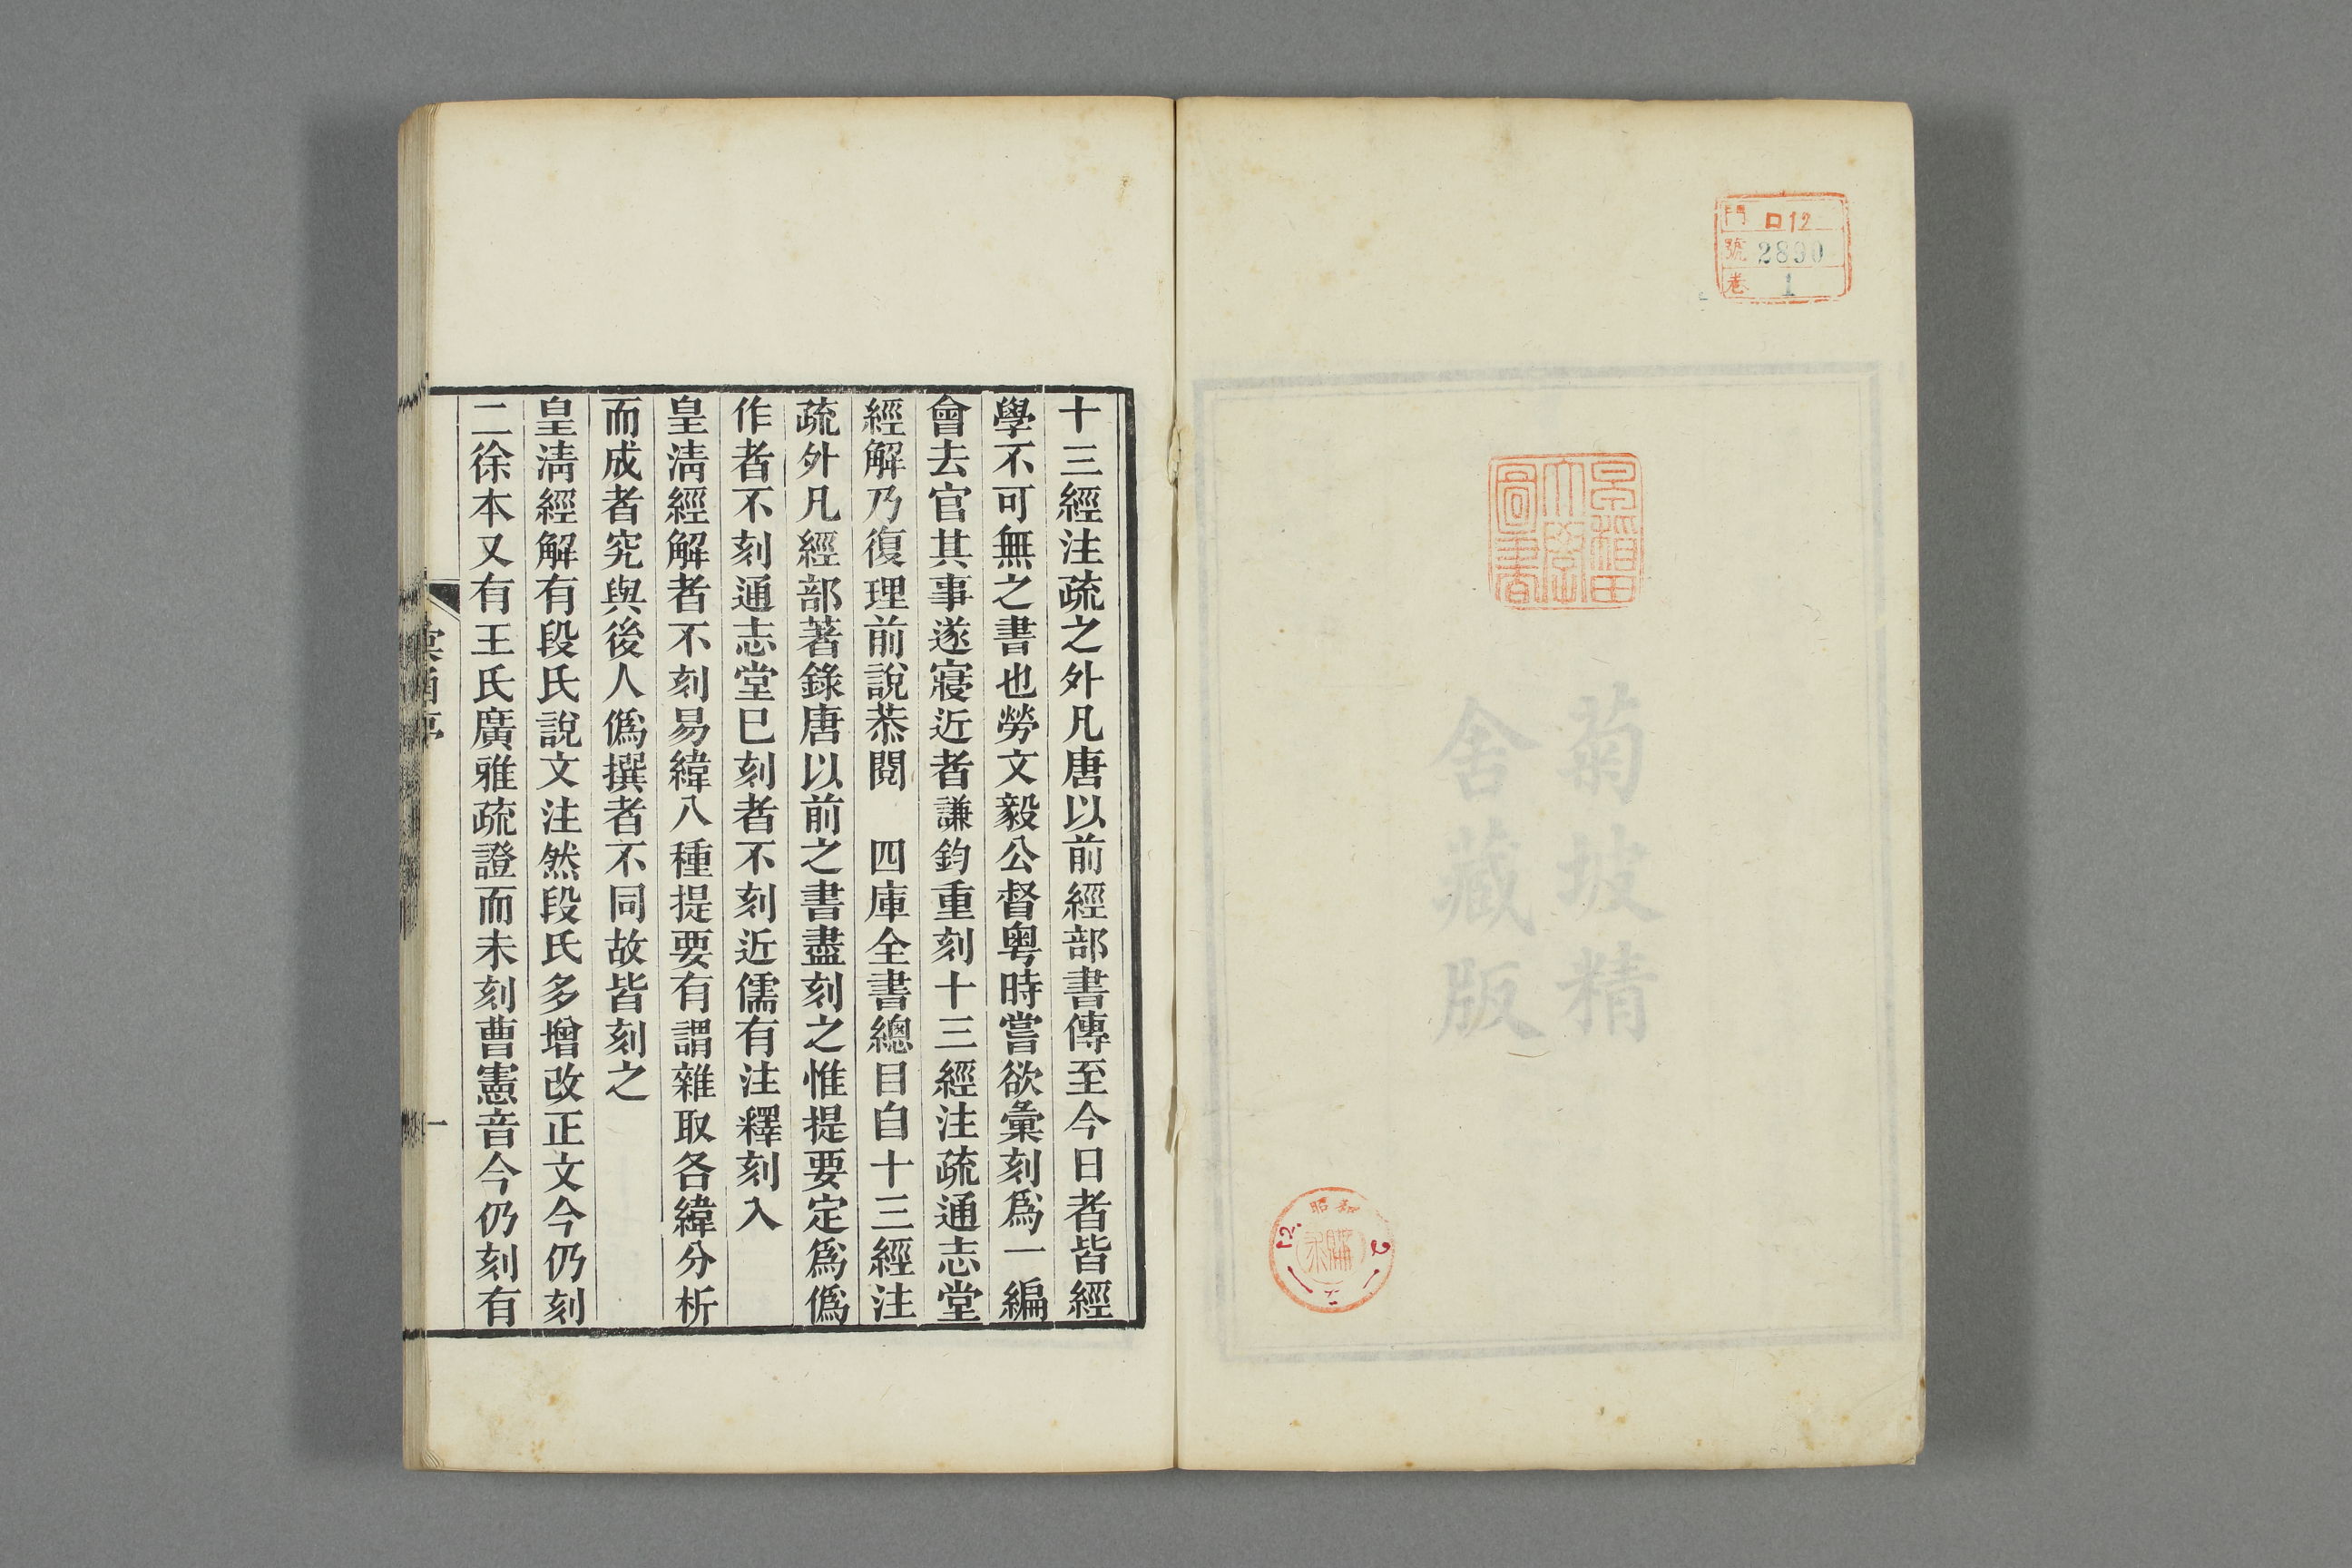 門 口12
號 2890
卷 1
早稲田
大學
圖書
菊坡精
舍藏版
昭和
12. 2
十三經注疏之外凡唐以前經部書傳至今日者皆經
學不可無之書也勞文毅公督粤時嘗欲彙刻爲一編
會去官其事遂寢近者謙鈞重刻十三經注疏通志堂
經解乃復理前說恭閱　四庫全書總目自十三經注
疏外凡經部著錄唐以前之書盡刻之惟提要定爲僞
作者不刻通志堂已刻者不刻近儒有注釋刻入
皇淸經解者不刻易緯八種提要有謂雜取各緯分析
而成者究與後人僞撰者不同故皆刻之
皇淸經解有段氏說文注然段氏多增改正文今仍刻
二徐本又有王氏廣雅疏證而未刻曹憲音今仍刻有
一